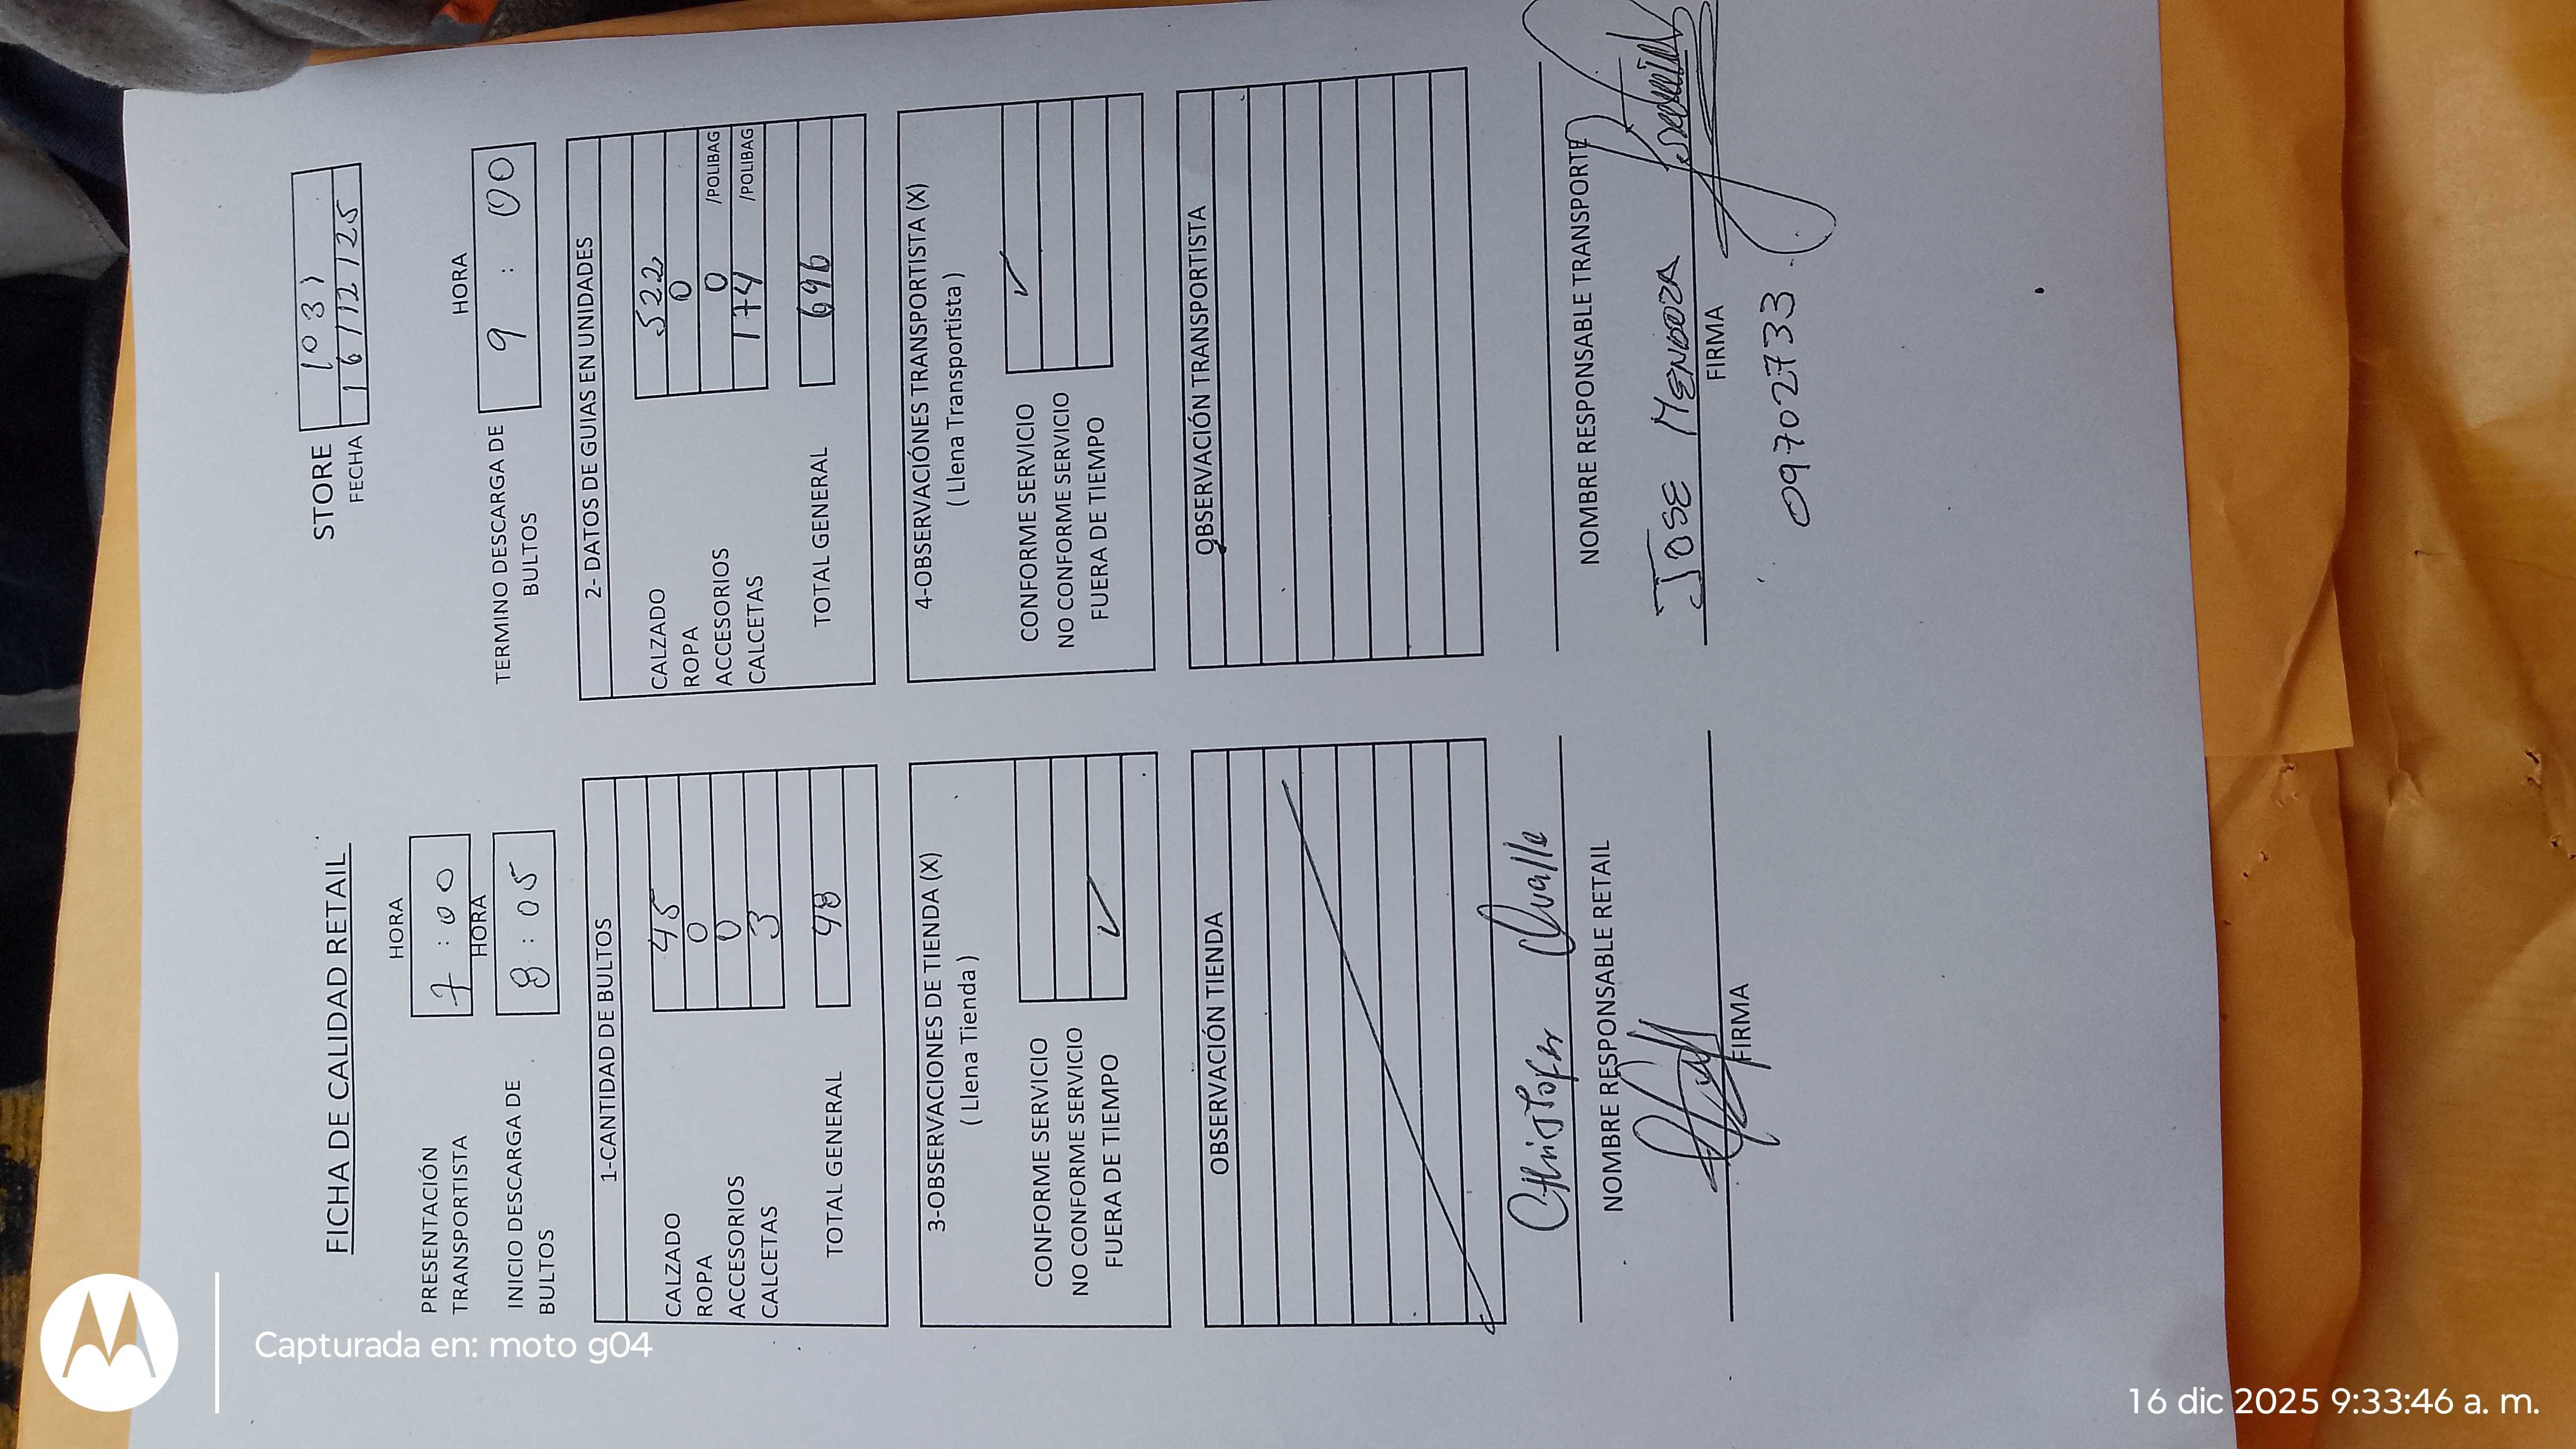 FICHA DE CALIDAD RETAIL
STORE 1031
FECHA 16/12/25
PRESENTACIÓN TRANSPORTISTA
HORA
7:00
INICIO DESCARGA DE BULTOS
HORA
8:05
TERMINO DESCARGA DE BULTOS
HORA
9:00
1-CANTIDAD DE BULTOS
CALZADO 45
ROPA 0
ACCESORIOS 0
CALCETAS 3
TOTAL GENERAL 48
2- DATOS DE GUIAS EN UNIDADES
CALZADO 522
ROPA 0
ACCESORIOS 0 /POLIBAG
CALCETAS 174 /POLIBAG
TOTAL GENERAL 696
3-OBSERVACIONES DE TIENDA (X)
( Llena Tienda )
CONFORME SERVICIO
NO CONFORME SERVICIO
FUERA DE TIEMPO ✓
4-OBSERVACIÓNES TRANSPORTISTA (X)
( Llena Transportista )
CONFORME SERVICIO ✓
NO CONFORME SERVICIO
FUERA DE TIEMPO
OBSERVACIÓN TIENDA
OBSERVACIÓN TRANSPORTISTA
Christofer Ovalle
NOMBRE RESPONSABLE RETAIL
FIRMA
NOMBRE RESPONSABLE TRANSPORTE
JOSE MENDOZA
FIRMA
09702733
Capturada en: moto g04
16 dic 2025 9:33:46 a. m.